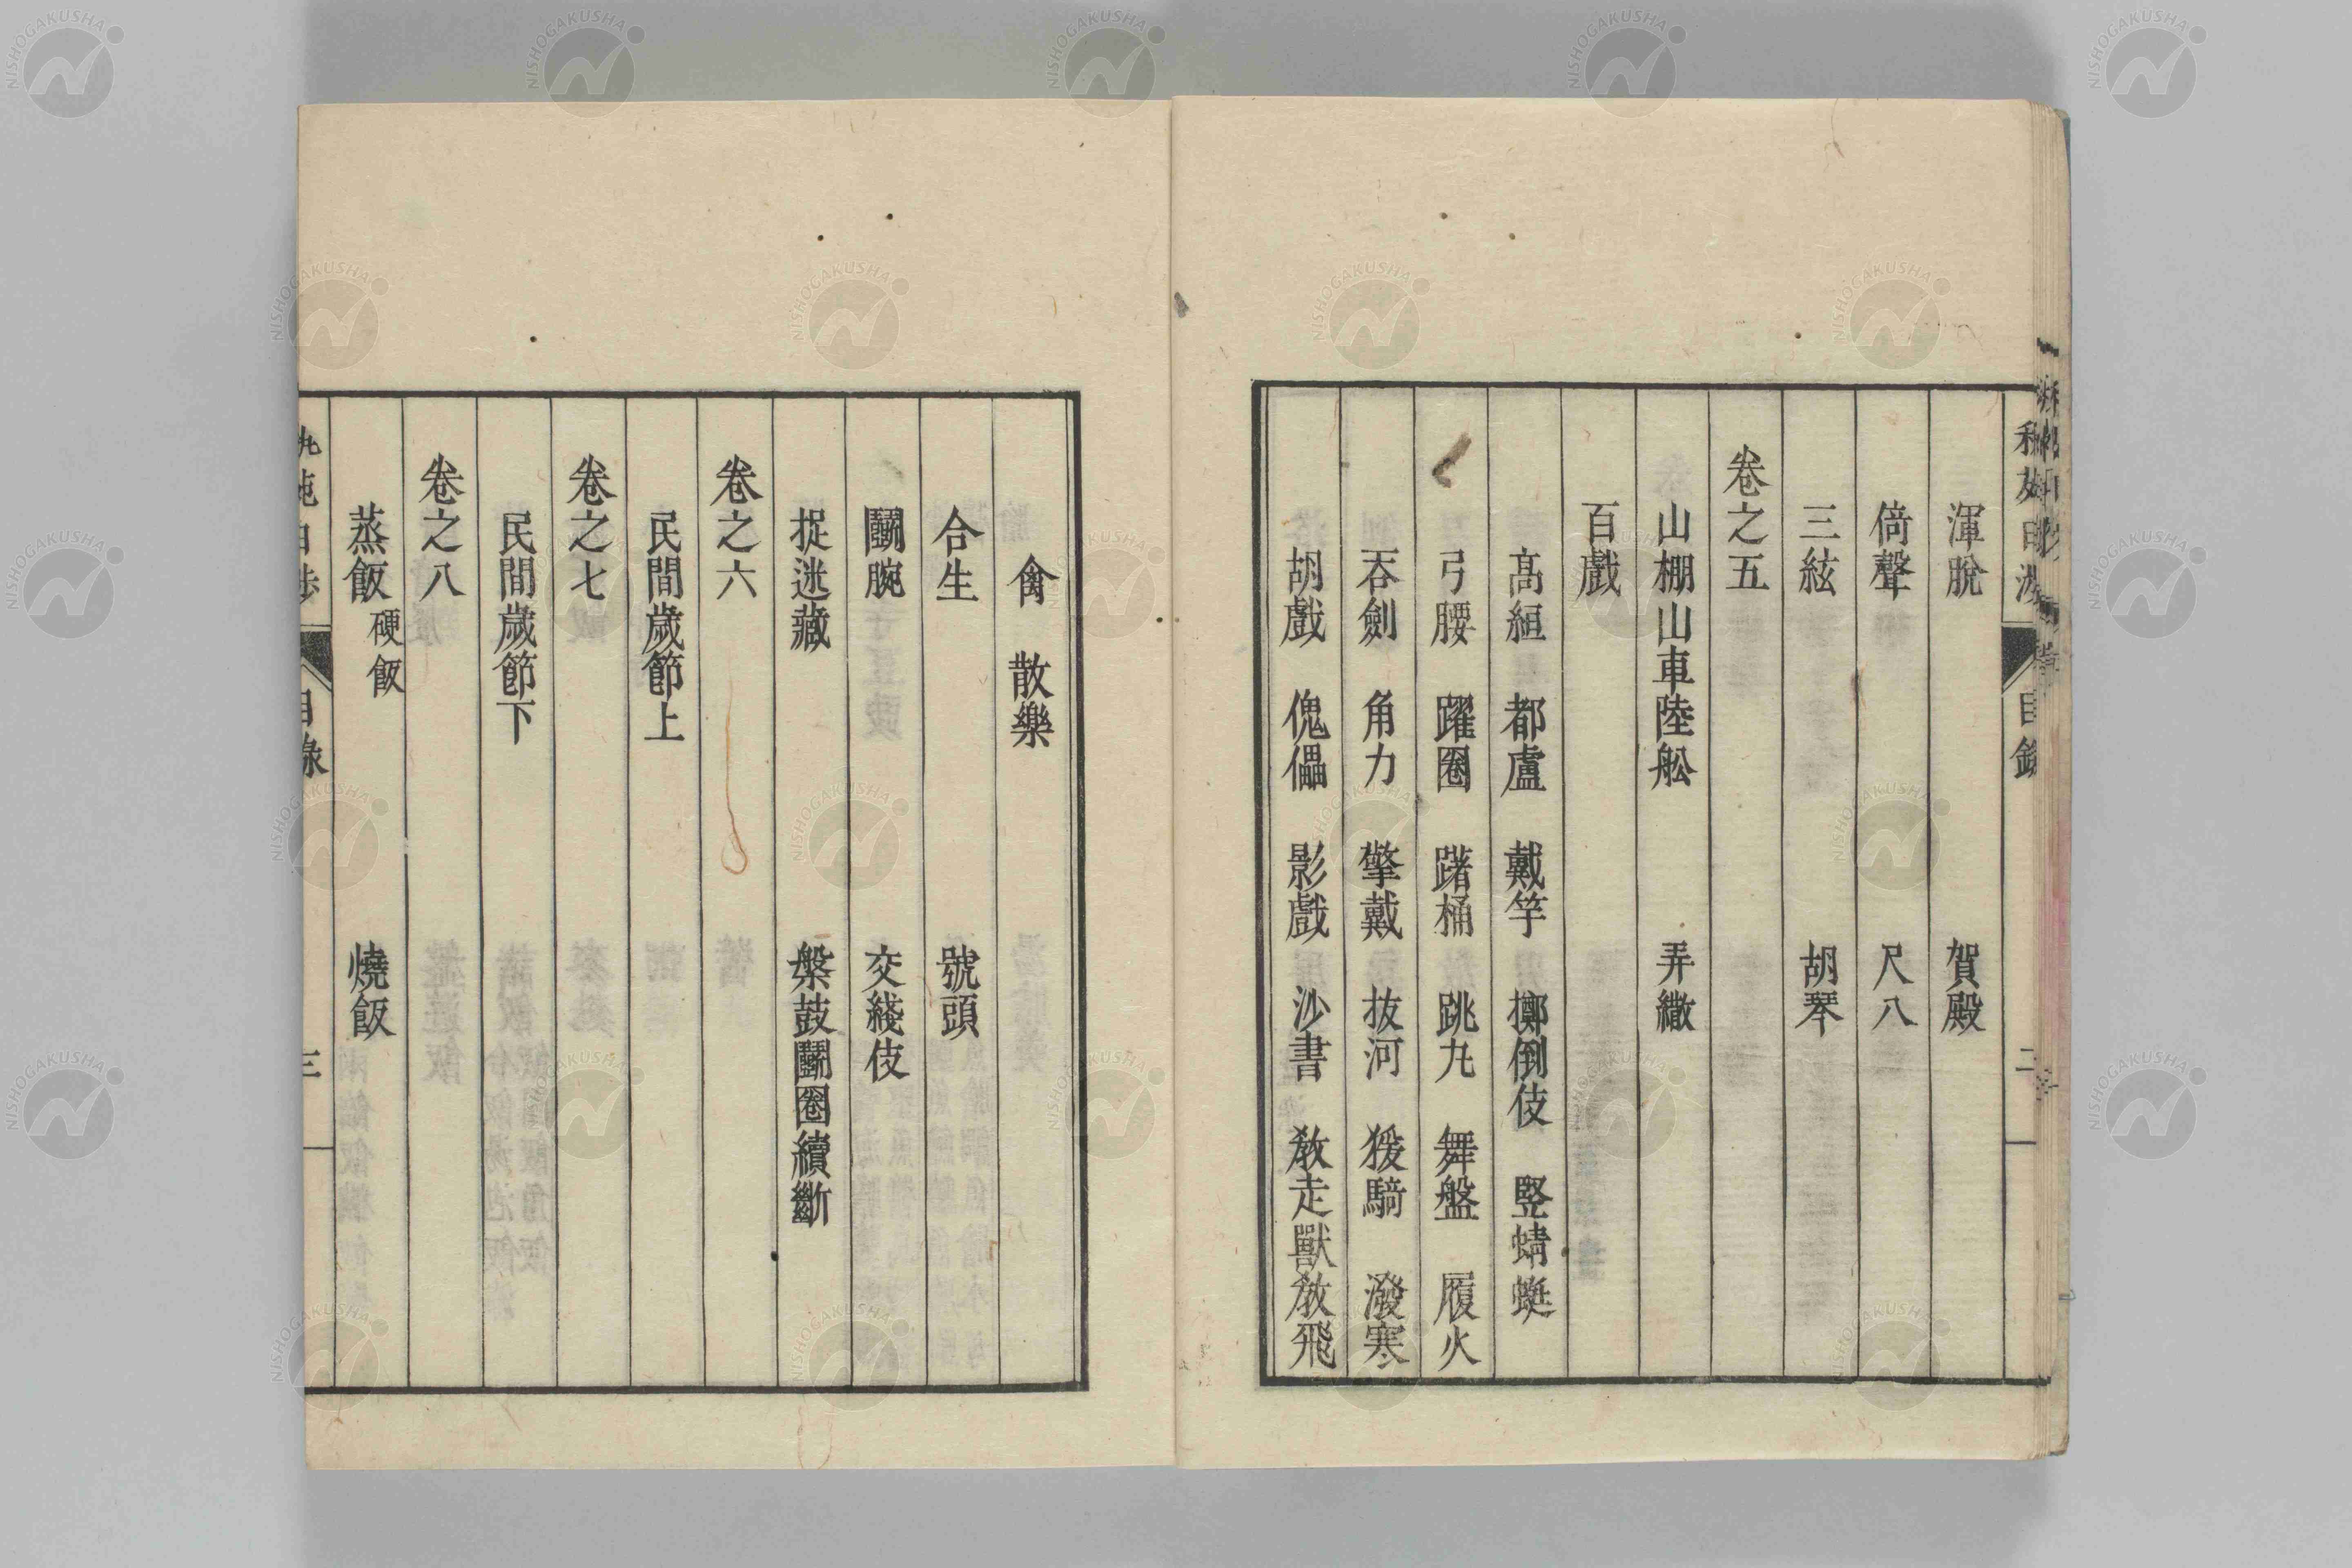 渾脫　賀殿
倚聲　尺八
三絃　胡琴
卷之五
山棚山車陸舩　弄繖
百戲
高絙　都盧　戴竿　擲倒伎　竪蜻蜓
弓腰　躍圈　躇桶　跳丸　舞盤　履火
吞劍　角力　擎戴　抜河　猨騎　潑寒
胡戲　傀儡　影戲　沙書　敎走獸敎飛
目錄
二
禽　散樂
合生　號頭
鬭腕　交綫伎
捉迷藏　槃鼓鬭圈續斷
卷之六
民間歲節上
卷之七
民間歲節下
卷之八
蒸飯 硬飯　燒飯
目錄
三
NISHOGAKUSHA